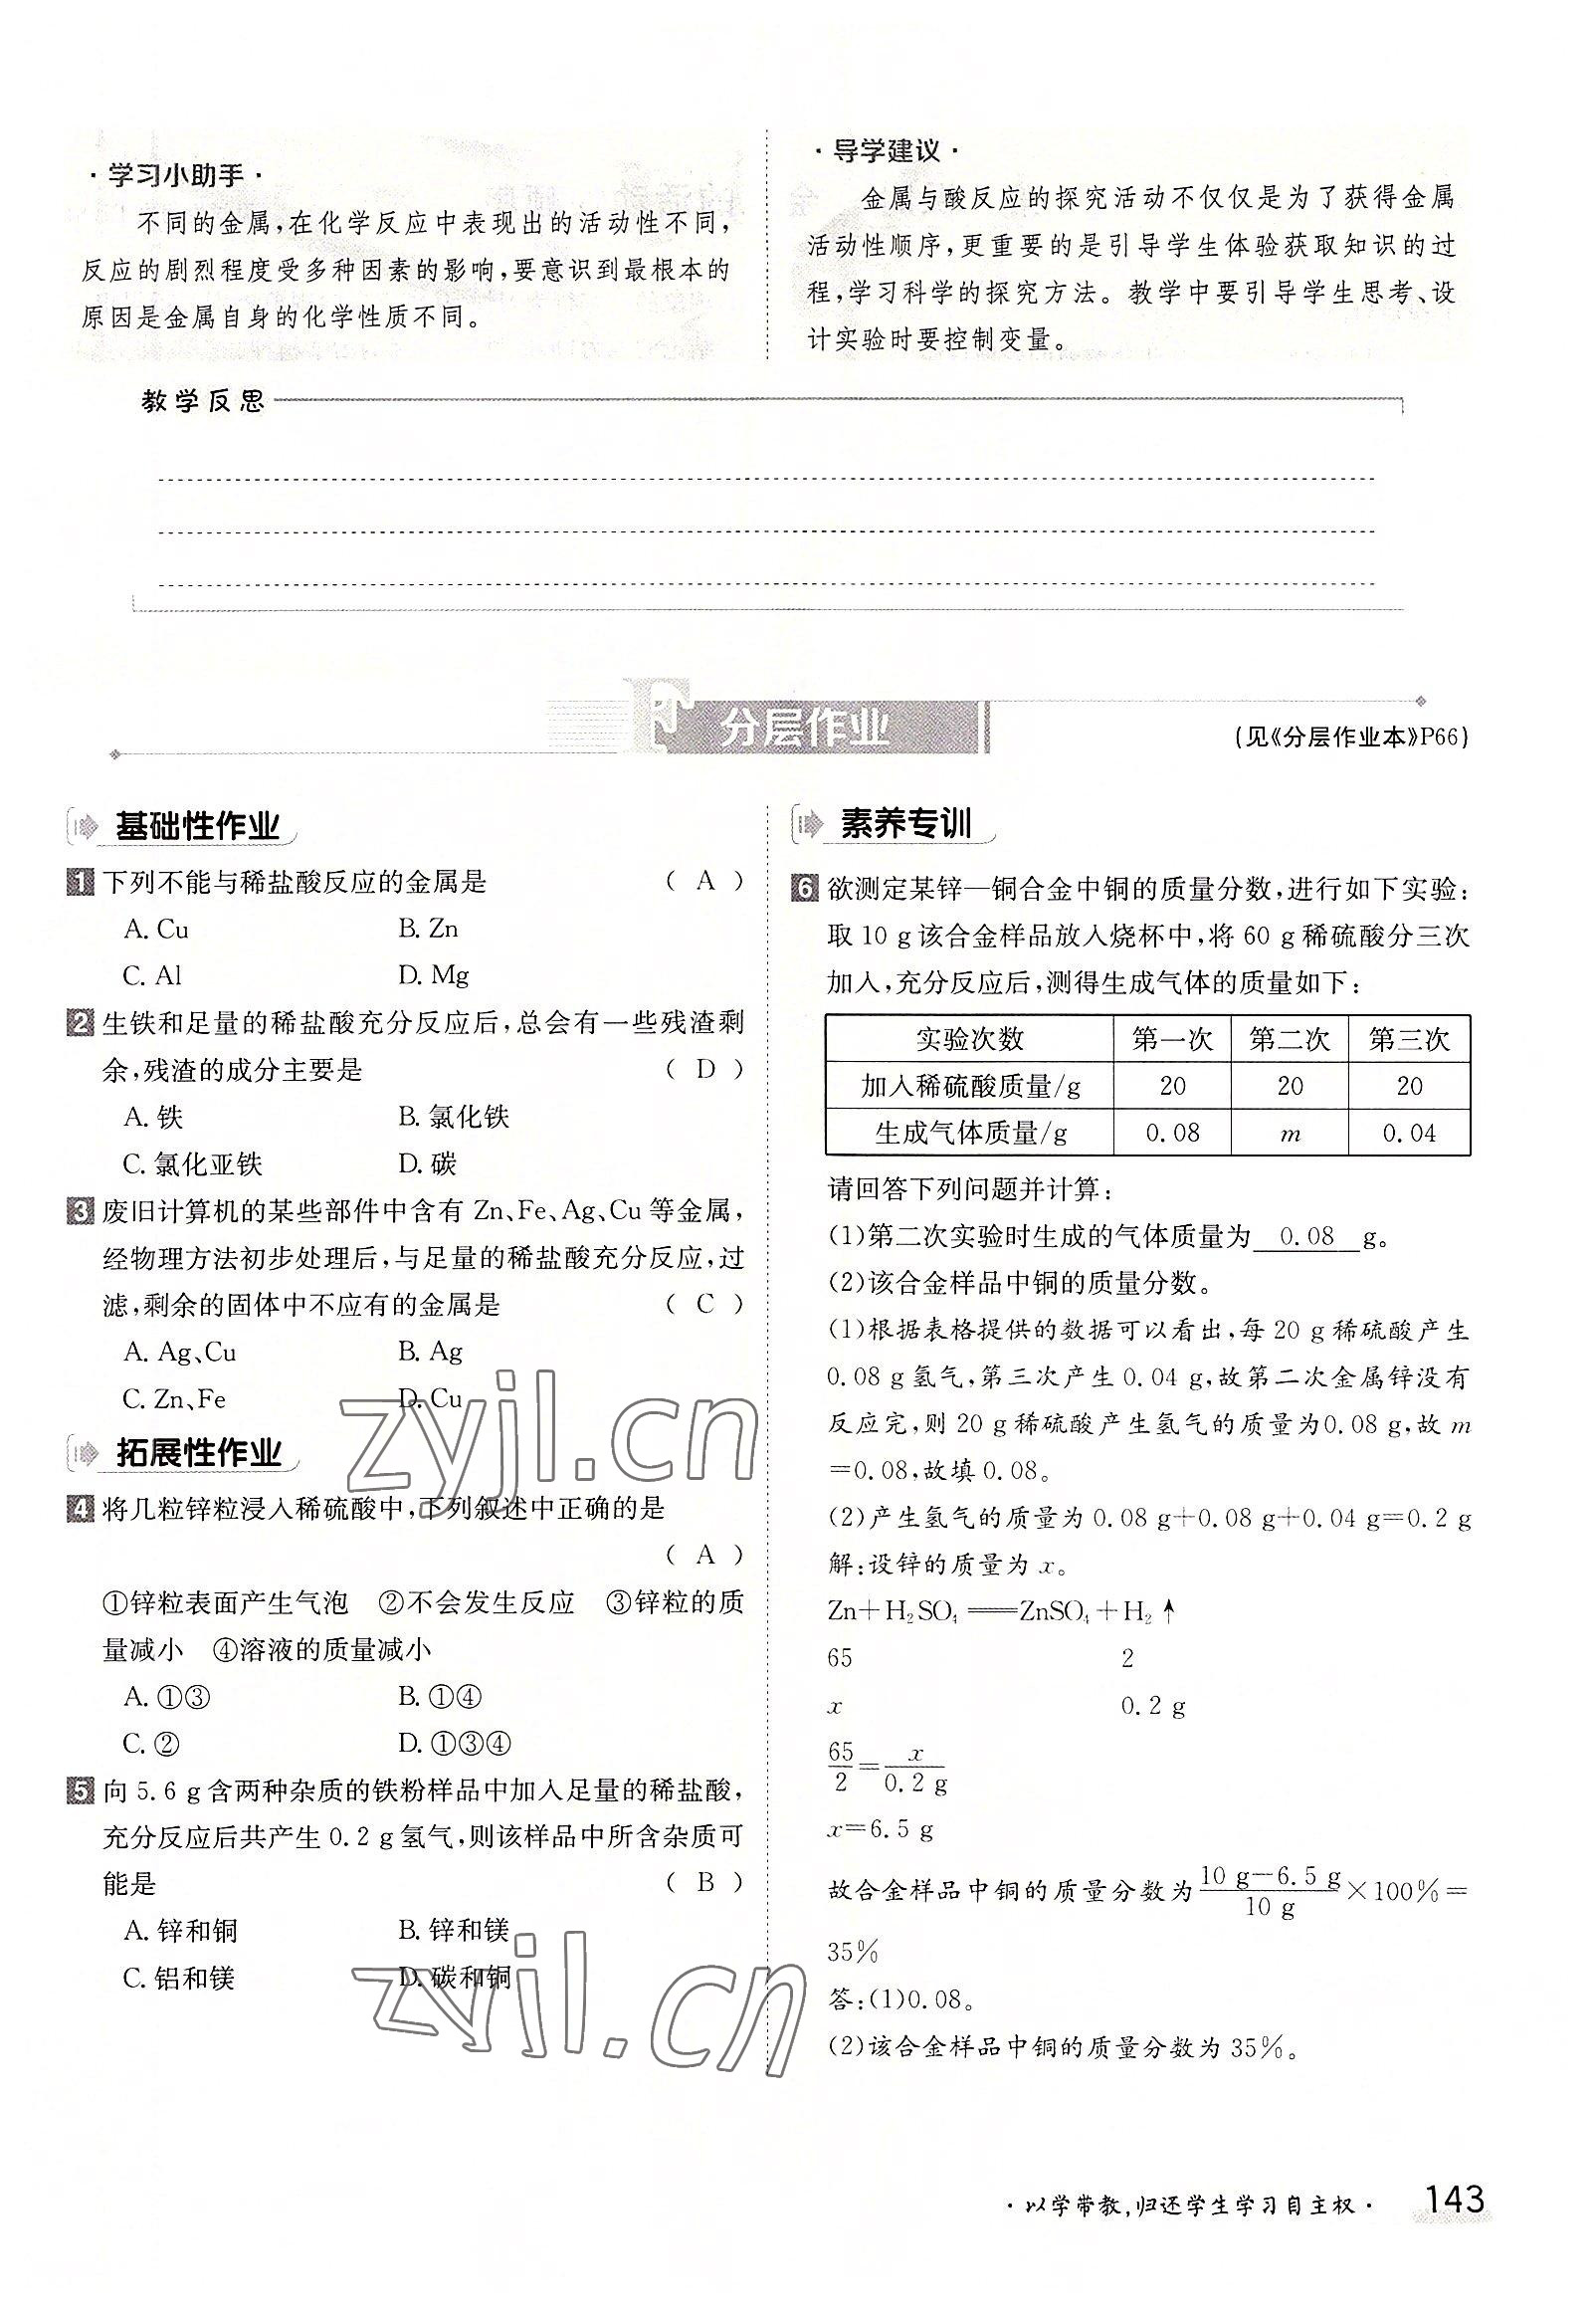 ·学习小助手·
不同的金属,在化学反应中表现出的活动性不同,
反应的剧烈程度受多种因素的影响,要意识到最根本的
原因是金属自身的化学性质不同。
·导学建议·
金属与酸反应的探究活动不仅仅是为了获得金属
活动性顺序,更重要的是引导学生体验获取知识的过
程,学习科学的探究方法。教学中要引导学生思考、设
计实验时要控制变量。
教学反思
分层作业
(见《分层作业本》P66)
基础性作业
1 下列不能与稀盐酸反应的金属是 ( A )
A. Cu B. Zn
C. Al D. Mg
2 生铁和足量的稀盐酸充分反应后,总会有一些残渣剩
余,残渣的成分主要是 ( D )
A. 铁 B. 氯化铁
C. 氯化亚铁 D. 碳
3 废旧计算机的某些部件中含有 Zn、Fe、Ag、Cu 等金属,
经物理方法初步处理后,与足量的稀盐酸充分反应,过
滤,剩余的固体中不应有的金属是 ( C )
A. Ag、Cu B. Ag
C. Zn、Fe D. Cu
拓展性作业
4 将几粒锌粒浸入稀硫酸中,下列叙述中正确的是
( A )
①锌粒表面产生气泡 ②不会发生反应 ③锌粒的质
量减小 ④溶液的质量减小
A. ①③ B. ①④
C. ② D. ①③④
5 向 5.6 g 含两种杂质的铁粉样品中加入足量的稀盐酸,
充分反应后共产生 0.2 g 氢气,则该样品中所含杂质可
能是 ( B )
A. 锌和铜 B. 锌和镁
C. 铝和镁 D. 碳和铜
素养专训
6 欲测定某锌—铜合金中铜的质量分数,进行如下实验:
取 10 g 该合金样品放入烧杯中,将 60 g 稀硫酸分三次
加入,充分反应后,测得生成气体的质量如下:
实验次数 第一次 第二次 第三次
加入稀硫酸质量/g 20 20 20
生成气体质量/g 0.08 m 0.04
请回答下列问题并计算:
(1)第二次实验时生成的气体质量为 0.08 g。
(2)该合金样品中铜的质量分数。
(1)根据表格提供的数据可以看出,每 20 g 稀硫酸产生
0.08 g 氢气,第三次产生 0.04 g,故第二次金属锌没有
反应完,则 20 g 稀硫酸产生氢气的质量为0.08 g,故 m
=0.08,故填 0.08。
(2)产生氢气的质量为 0.08 g+0.08 g+0.04 g=0.2 g
解:设锌的质量为 x。
Zn+H₂SO₄══ZnSO₄+H₂↑
65 2
x 0.2 g
65/2=x/0.2 g
x=6.5 g
故合金样品中铜的质量分数为 (10 g-6.5 g)/10 g×100%=
35%
答:(1)0.08。
(2)该合金样品中铜的质量分数为 35%。
zyjl.cn
zyjl.cn
·以学带教,归还学生学习自主权·
143